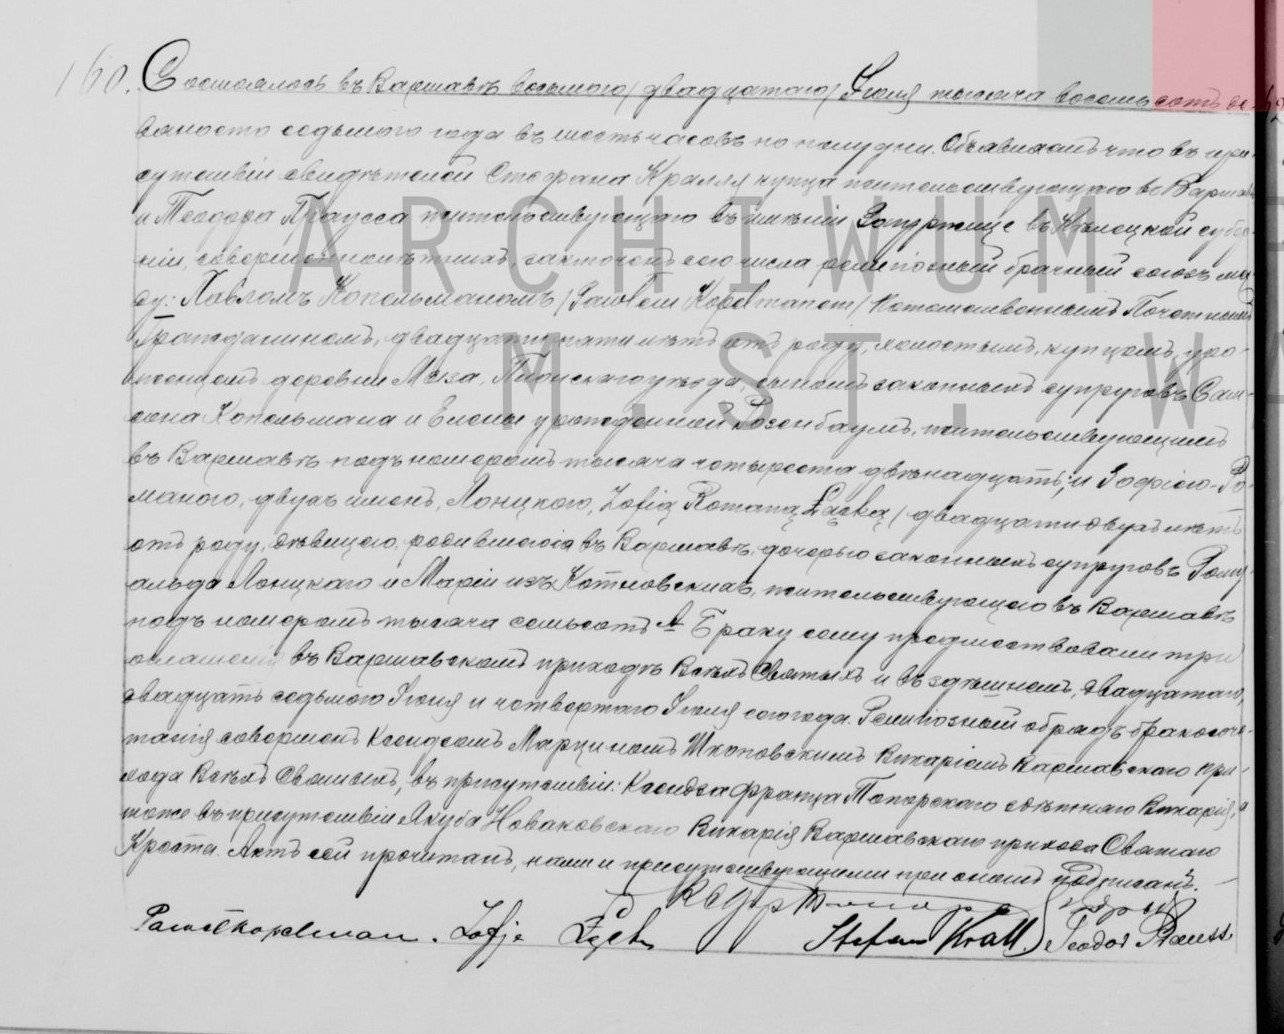 160. Состоялось въ Варшавѣ восьмого /двадцатаго/ Іюля тысяча восемьсотъ де-
вяносто седьмого года въ шесть часовъ по полудни. Объявляемъ что въ при-
сутствіи свидѣтелей Стефана Кралля купца жительствующаго въ Варшавѣ
и Теодора Праусса жительствующаго въ имѣніи въ Кѣлецкой губер-
ніи, совершеннолѣтнихъ, заключенъ сего числа религіозный брачный союзъ ме-
ду: Павломъ Копельманомъ /Pawłem Kopelmanem/ Потомственнымъ Почетнымъ
Гражданиномъ, двадцати пяти лѣтъ отъ роду, холостымъ, купцомъ, уро-
женцемъ деревни уѣзда, сыномъ законныхъ супруговъ Сам-
сона Копельмана и Елены урожденной Розенбаумъ, жительствующимъ
въ Варшавѣ подъ номеромъ тысяча четыреста двѣнадцать; и Зофіею-Ро-
маною, двухъ именъ, Лонцкою, Zofią Romaną Łącką / двадцати двухъ лѣтъ
отъ роду, дѣвицею, родившеюся въ Варшавѣ, дочерью законныхъ супруговъ Рому-
альда Лонцкаго и Маріи изъ Котковскихъ, жительствующею въ Варшавѣ
подъ номеромъ тысяча семьсотъ А. Браку сему предшествовали три
оглашенія въ Варшавскомъ приходѣ Всѣхъ Святыхъ и въ здѣшнемъ, двадцатаго,
двадцать седьмого Іюня и четвертаго Іюля сего года. Религіозный обрядъ бракосоче-
танія совершенъ Ксендзомъ Марциномъ Шкоповскимъ Викаріемъ Варшавскаго при-
хода Всѣхъ Святыхъ, въ присутствіи: Ксендза Франца Топорскаго Викарія, а
тоже въ присутствіи Якуба Новаковскаго Викарія Варшавскаго прихода Святаго
Креста. Актъ сей прочитанъ, нами и присутствующими при ономъ подписанъ. —
Paweł Kopelman. Zofja Łącka Stefan Krall. Teodor Prauss
ARCHIWUM
M. ST. WA